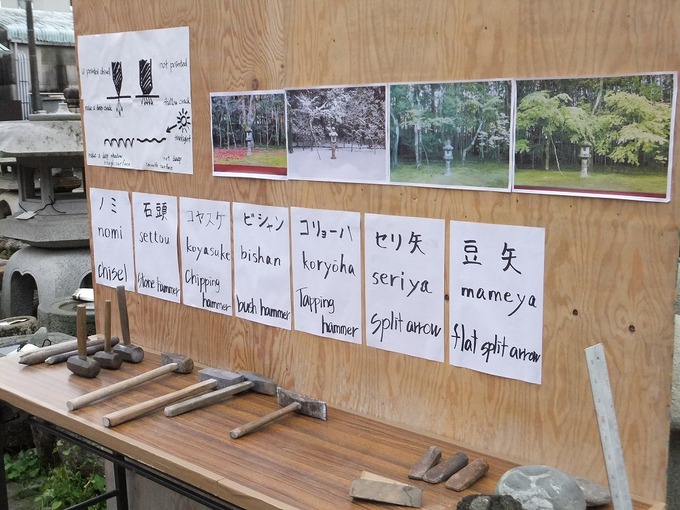 a pointed chisel
not pointed
make a deep crack
shallow crack
sunlight
make a deep shadow
rough surface
not deep
smooth surface
ノミ
nomi
chisel
石頭
settou
Stone hammer
コヤスケ
koyasuke
Chipping
hammer
ビシャン
bishan
bush hammer
コリョーハ
koryōha
Tapping
hammer
セリ矢
seriya
split arrow
豆矢
mameya
flat split arrow